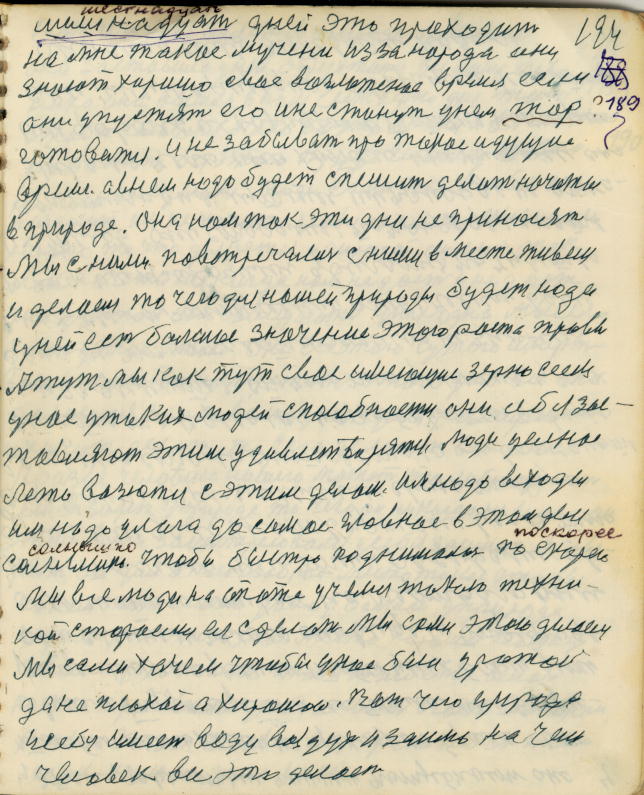 шестнадцат
шишнадцат дней это проходит 194
на мне такое мучени из за народа они
знают хорошо свое возможное время если
они упустят его и не станут унем жар ? 189
готовит. И не забыват про такое идущие
время. а в нем надо будет спешит делат начати
в природе. Она нам так эти дни не приносят
Мы с ними повстречалис с ними вместе живем
и делаем то чего для нашей природы будет нада
у ней ест болшое значение этого роста травы
А тут мы как тут свое имеющие зерно сеем
у нас у таких людей способности они себя зас-
тавляют этим удивлетварятся люди целное
лето возются с этим делом. им надо выходы
им надо улога до самое главное в этом деле
солнышко поскорее
солнышко. чтобы быстро поднималас по скорей
Мы все люди на опыте учемся такою техни-
кой стараемся ее сделат. Мы сами этаю делаем
Мы сами хочем чтобы у нас был урожай
да не плахой а хорошой. Вот чего природа
и себя имеет воду воздух и землю на чем
человек все это делает